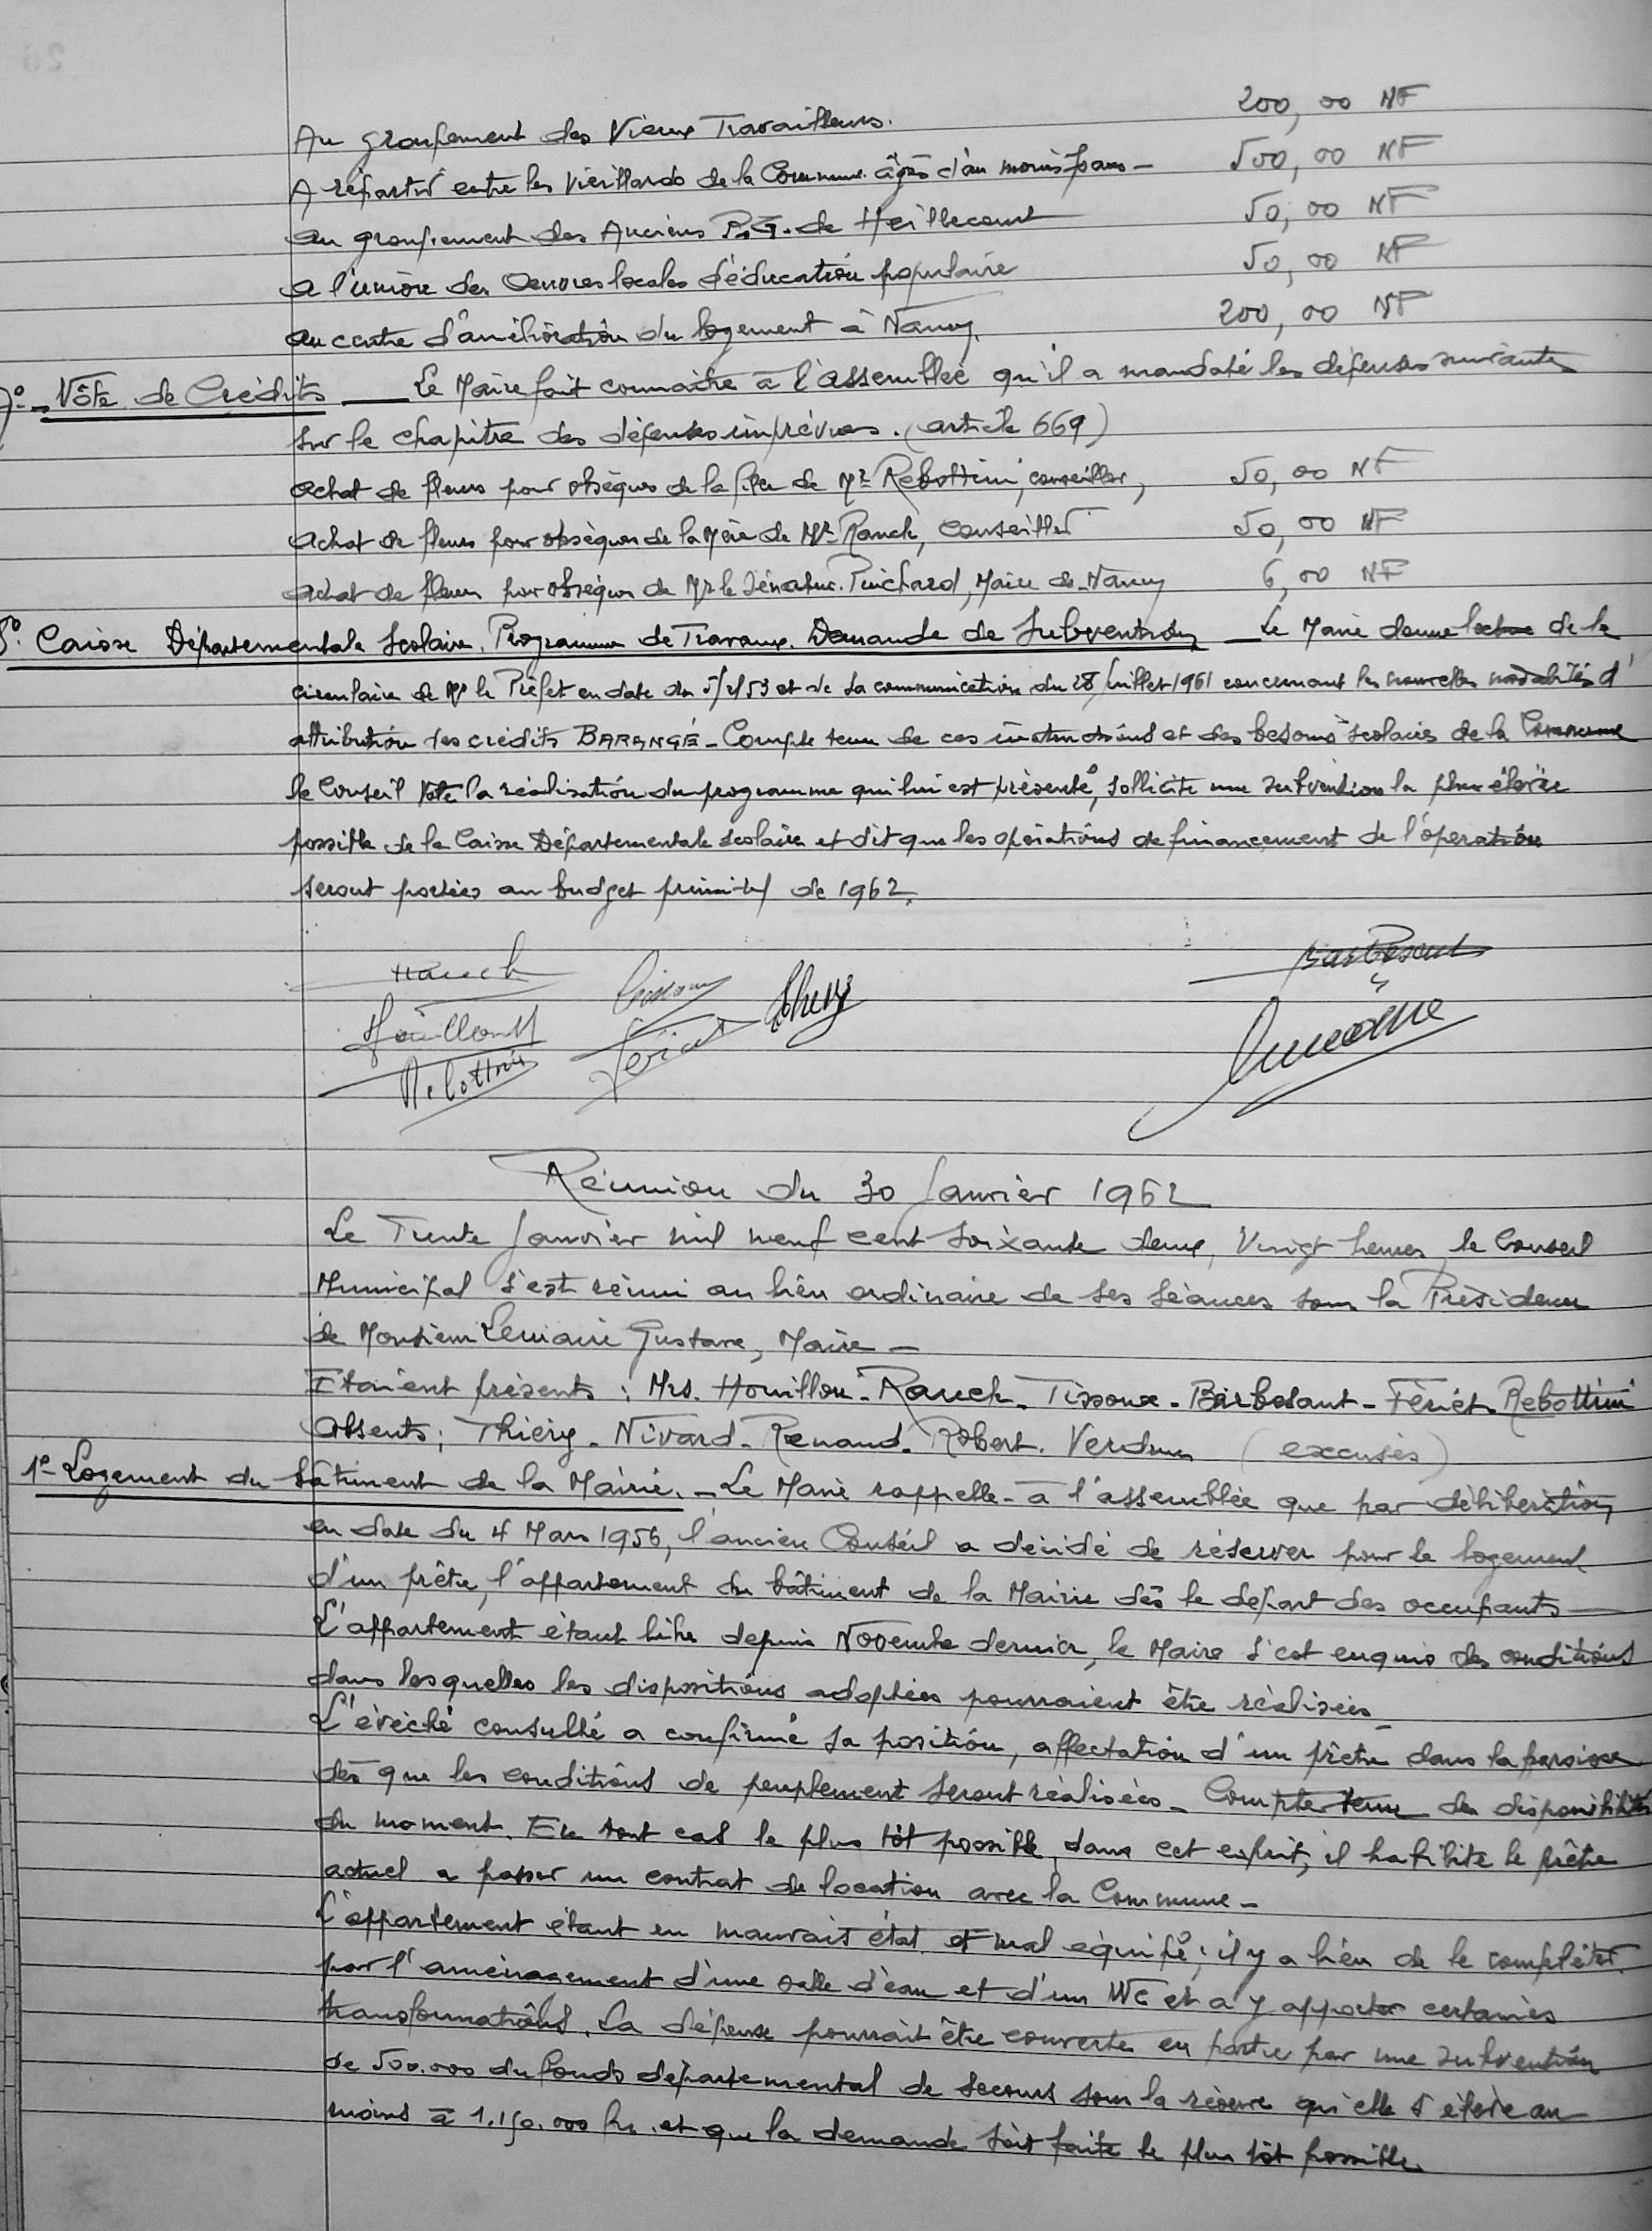 Au groupement des Vieux Travailleurs. 200,00 NF
A répartir entre les vieillards de la Commune âgés d'au moins ans - 500,00 NF
au groupement des Anciens P.G. de Heillecourt 50,00 NF
a l'union des Oeuvres locales d'éducation populaire 50,00 NF
au centre d'amélioration du logement à Nancy. 200,00 NF
7° - Vôte de Crédits — Le Maire fait connaitre à l'assemblée qu'il a mandaté les dépenses suivantes
sur le chapitre des dépenses imprévues. (article 669)
achat de fleurs pour obsèques de la de Mr Rebottini, conseiller, 50,00 NF
achat de fleurs pour obsèques de la Mère de Mr Rauch, conseiller 50,00 NF
achat de fleurs pour obsèques de Mr le Sénateur Pinchard, Maire de Nancy 6,00 NF
8° Caisse Départementale Scolaire. Programme de Travaux. Demande de Subvention — Le Maire donne lecture de la
circulaire de Mr le Préfet en date du 5/2/53 et de sa communication du 28 Juillet 1961 concernant les nouvelles modalités d'
attribution des crédits BARANGÉ - Compte tenu de ces instructions et des besoins scolaires de la Commune
le Conseil Vote la réalisation du programme qui lui est présenté, sollicite une subvention la plus élevée
possible de la Caisse Départementale Scolaire et dit que les opérations de financement de l'opération
seront portées au budget primitif de 1962.
Rauch Tissoux Thiery Barbesant
Houillon Fériet Lemaire
Rebottini
Réunion du 30 Janvier 1962
Le Trente Janvier mil neuf cent soixante deux, Vingt heures, le Conseil
Municipal s'est réuni au lieu ordinaire de ses séances sous la Présidence
de Monsieur Lemaire Gustave, Maire -
Etaient présents : Mrs. Houillon - Rauch - Tissoux - Barbesant - Fériet - Rebottini
Absents ; Thiéry - Nivard - Renaud - Robert. Verdun (excusés)
1° - Logement du bâtiment de la Mairie. - Le Maire rappelle - à l'assemblée que par délibération
en date du 4 Mars 1956, l'ancien Conseil a décidé de réserver pour le logement
d'un prêtre, l'appartement du bâtiment de la Mairie dès le départ des occupants -
L'appartement étant libre depuis Novembre dernier, le Maire s'est enquis des conditions
dans lesquelles les dispositions adoptées pourraient être réalisées -
L'évêché consulté a confirmé sa position, affectation d'un prêtre dans la paroisse
dès que les conditions de peuplement seront réalisées - Compte tenu des disponibilités
du moment. En tout cas le plus tôt possible, dans cet esprit, il habilite le prêtre
actuel a passer un contrat de location avec la Commune -
L'appartement étant en mauvais état et mal équipé ; il y a lieu de le compléter
par l'aménagement d'une salle d'eau et d'un WC et a y apporter certaines
transformations. La dépense pourrait être couverte en partie par une subvention
de 500.000 du fonds départemental de secours sous la réserve qu'elle s'élève au
moins à 1.150.000 frs. et que la demande soit faite le plus tôt possible.